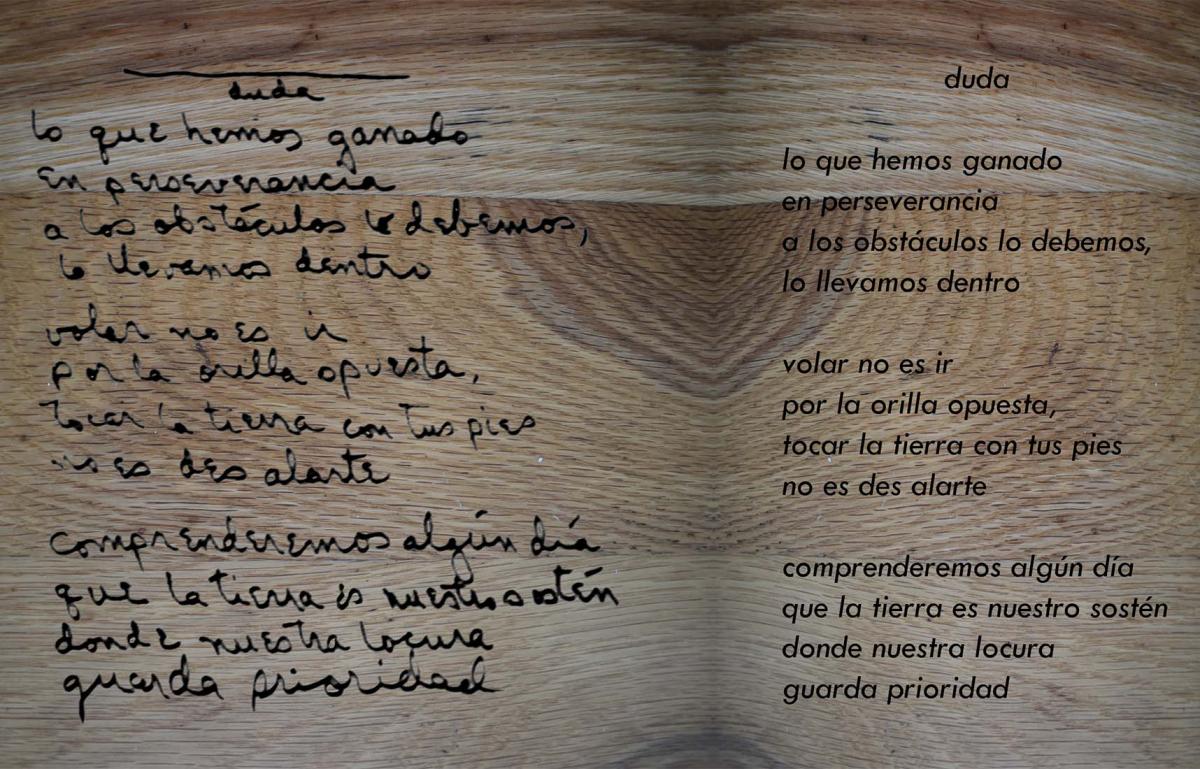 duda
lo que hemos ganado
en perseverancia
a los obstáculos lo debemos,
lo llevamos dentro
volar no es ir
por la orilla opuesta,
tocar la tierra con tus pies
no es des alarte
comprenderemos algún día
que la tierra es nuestro sostén
donde nuestra locura
guarda prioridad
duda
lo que hemos ganado
en perseverancia
a los obstáculos lo debemos,
lo llevamos dentro
volar no es ir
por la orilla opuesta,
tocar la tierra con tus pies
no es des alarte
comprenderemos algún día
que la tierra es nuestro sostén
donde nuestra locura
guarda prioridad